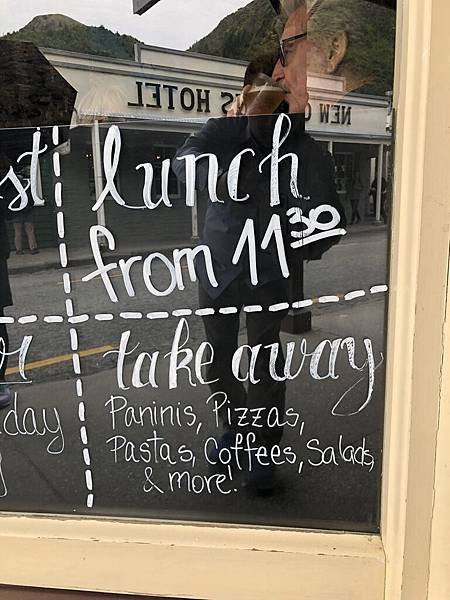 NEW O
NS HOTEL
st
lunch
from 11 30
take away
Paninis, Pizzas,
Pastas, Coffees, Salads,
& more!
day